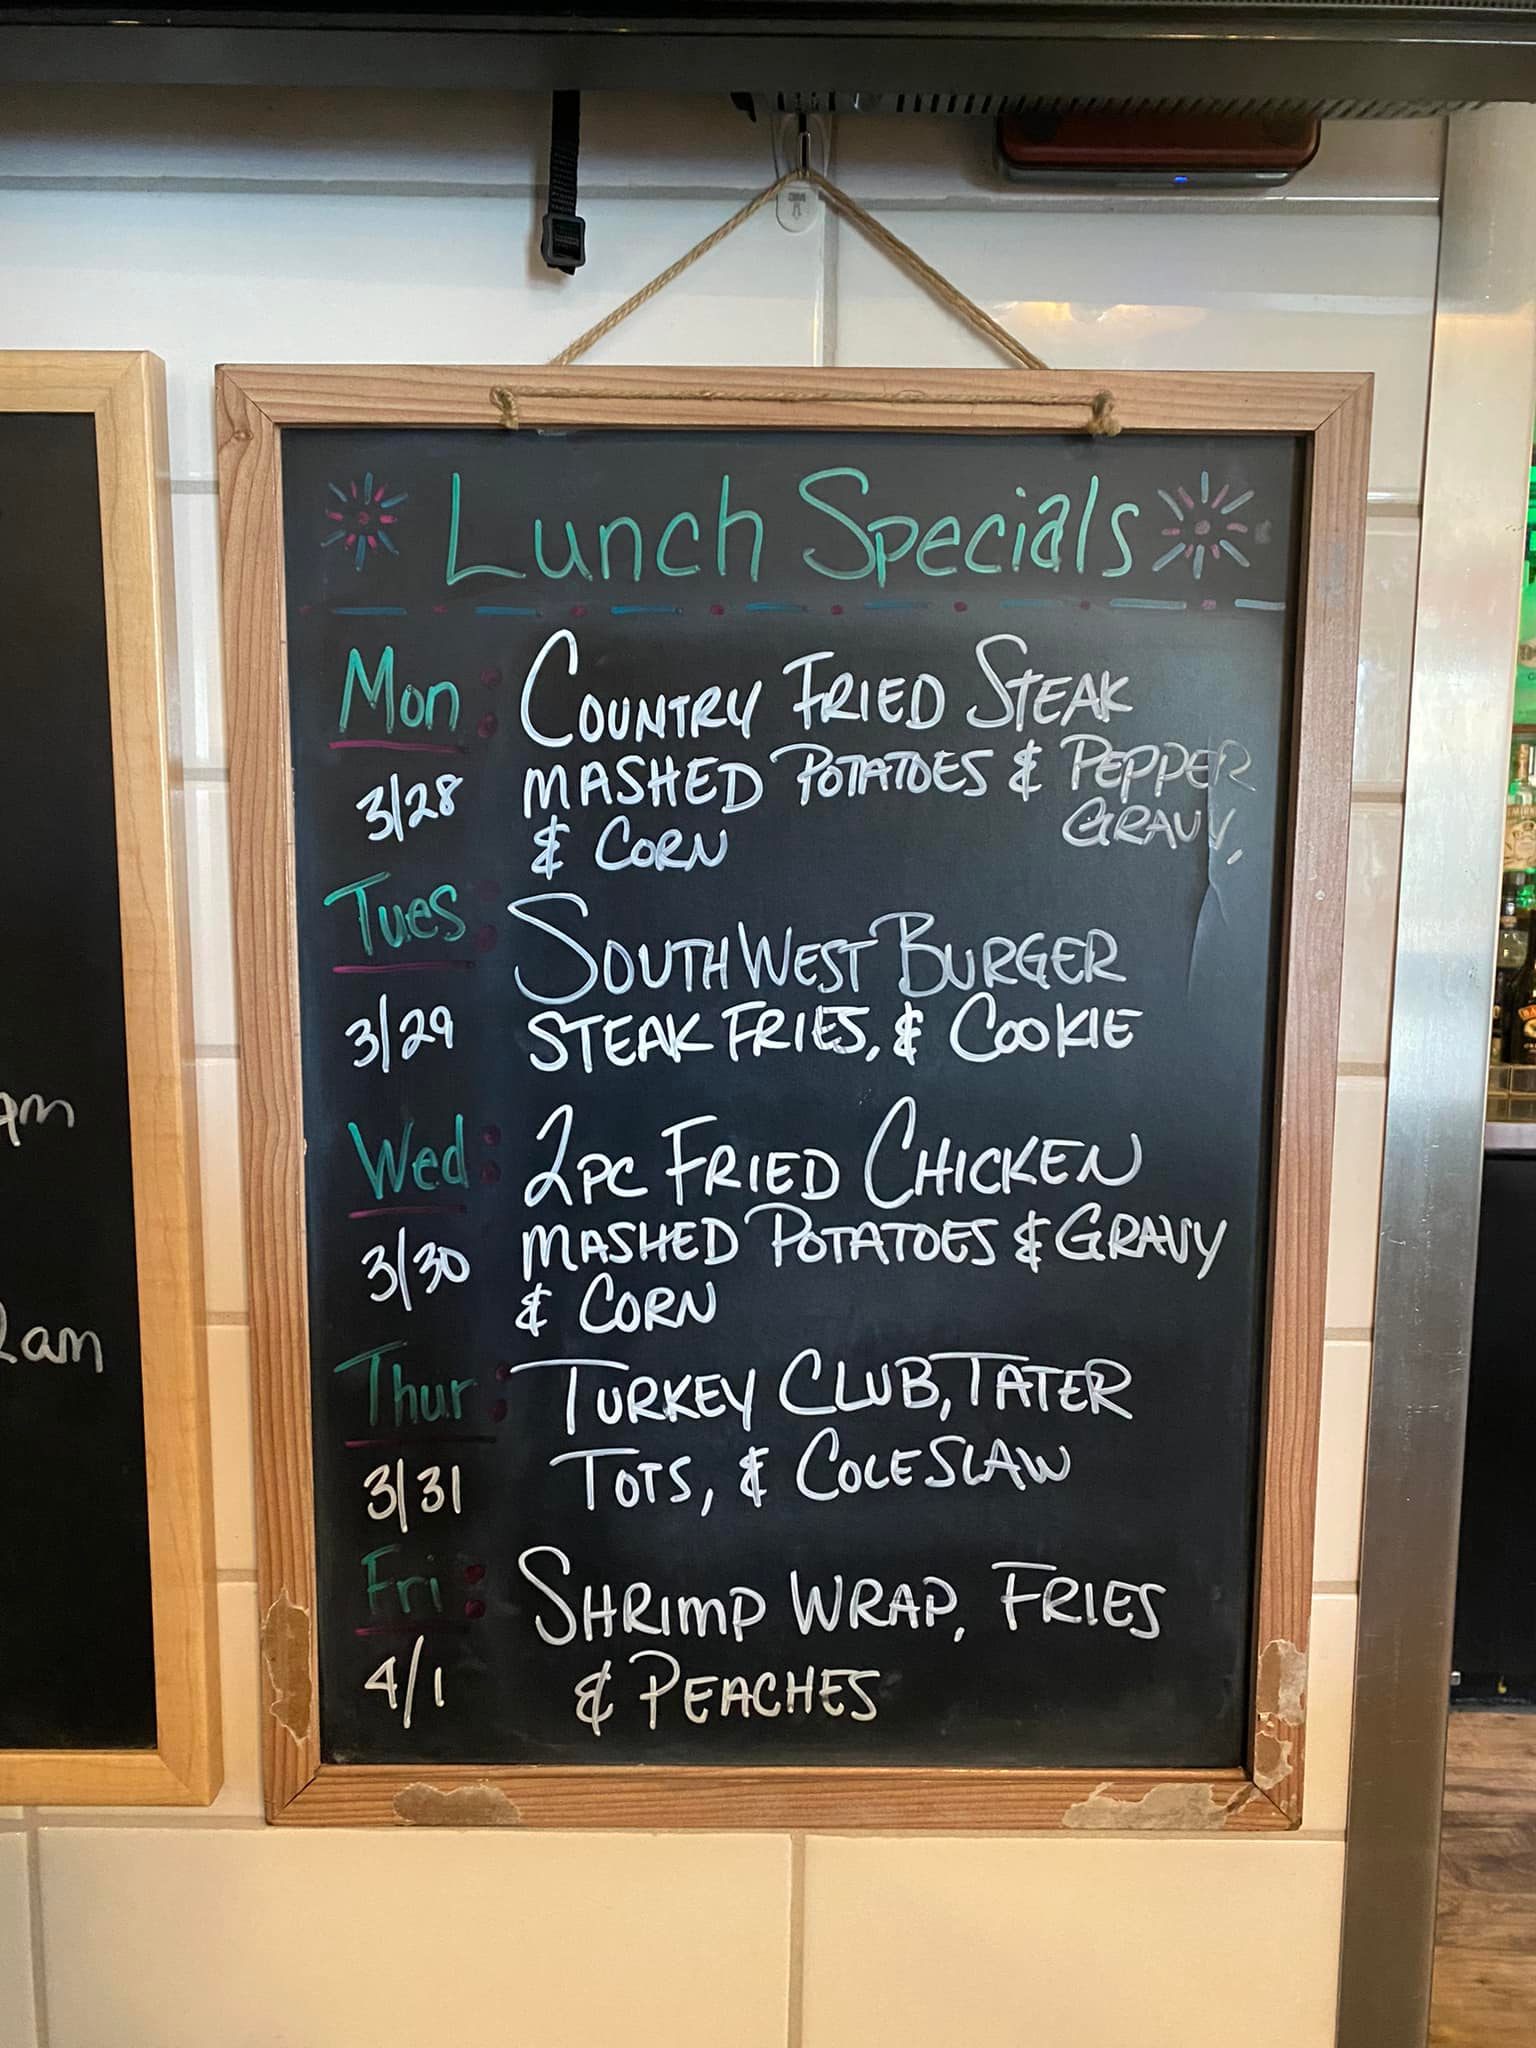 Lunch Specials
Mon: COUNTRY FRIED STEAK
3/28 MASHED POTATOES & PEPPER
GRAVY,
& CORN
Tues: SOUTHWEST BURGER
3/29 STEAK FRIES, & COOKIE
Wed: 2PC FRIED CHICKEN
3/30 MASHED POTATOES & GRAVY
& CORN
Thur: TURKEY CLUB, TATER
3/31 TOTS, & COLESLAW
Fri: SHRIMP WRAP, FRIES
4/1 & PEACHES
am